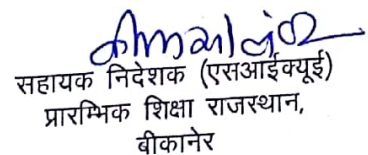 सहायक निदेशक (एसआईक्यूई)
प्रारम्भिक शिक्षा राजस्थान,
बीकानेर